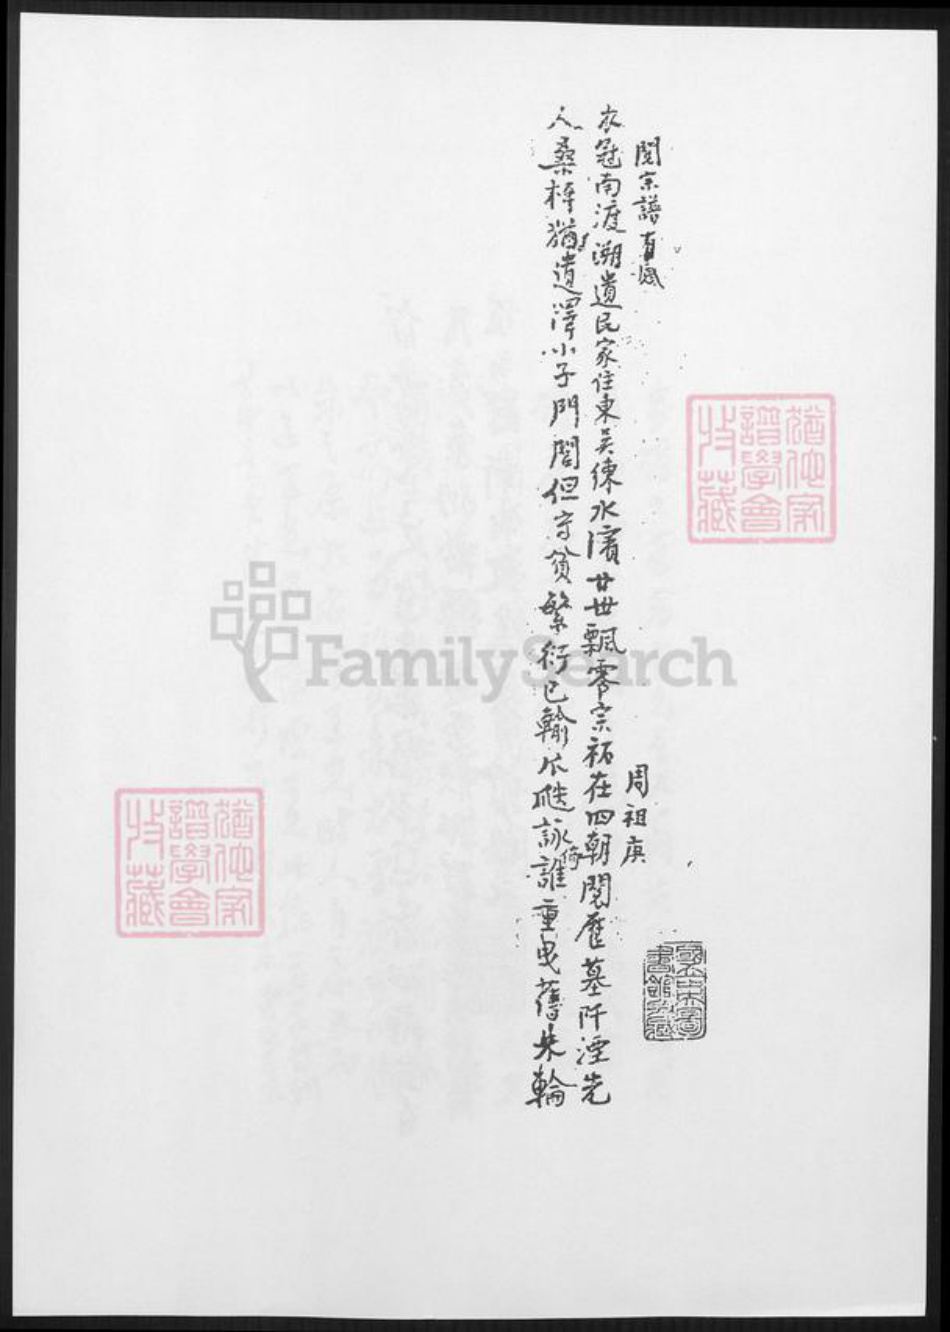 閱宗譜有感
周祖庚
衣冠南渡溯遺民家住東吳練水濱廿世飄零宗祏在四朝閱歷墓阡湮先
人桑梓猶遺澤小子門閭但守貧繁衍已輸瓜瓞詠誰重曳舊朱輪
倚
猶他家譜學會收藏
猶他家譜學會收藏
國立中央圖書館收藏
FamilySearch